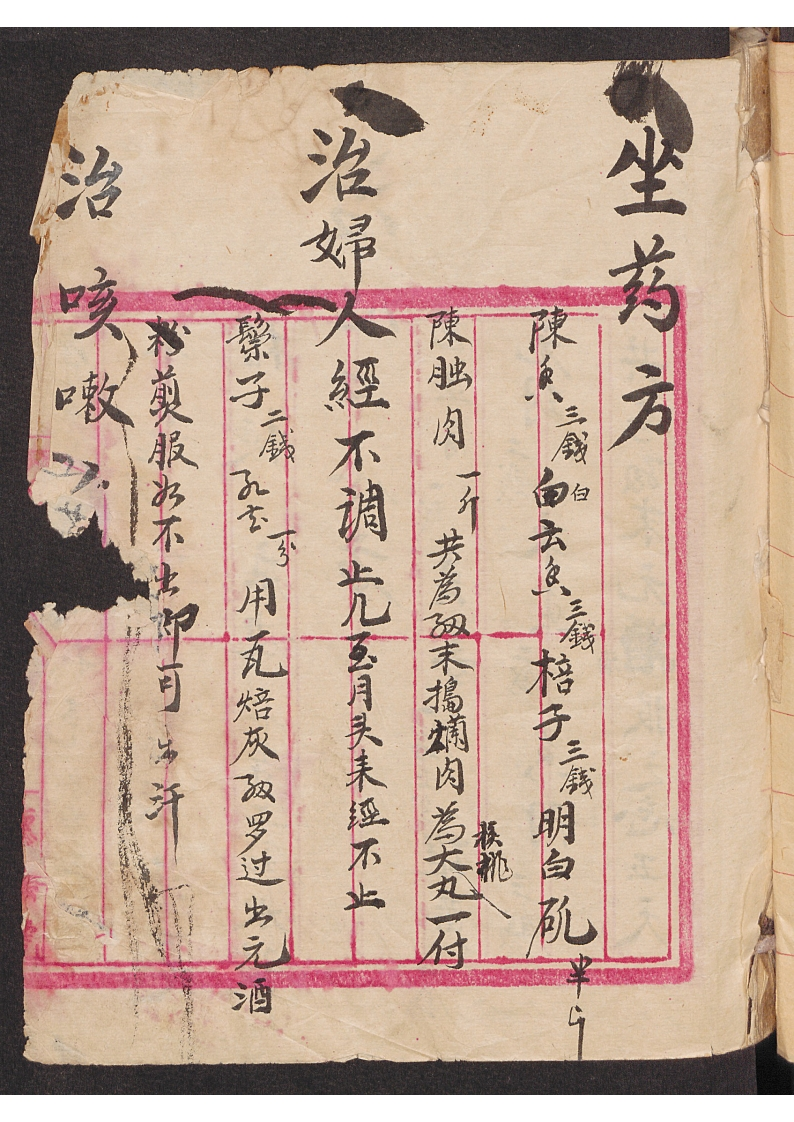 坐药方
陳香三錢白云香白三錢棓子三錢明白矾半斤
陳䖳肉一斤共為細末搗爛肉為大丸一付
核桃
治婦人經不調止几至月头来經不止
子二錢孔苎一分用瓦焙灰細罗过出元酒
煎服如不出即可出汗
治咳嗽